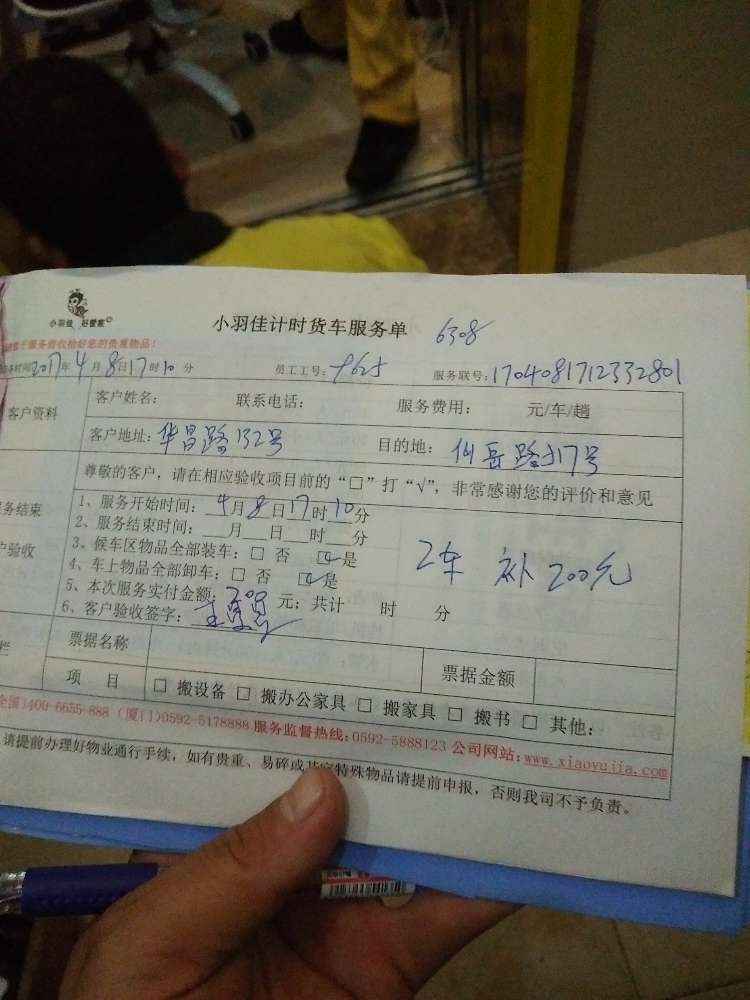 小羽佳 好管家
小羽佳计时货车服务单 6308
服务前收拾好您的贵重物品!
时间2017年4月8日17时10分 员工工号: 9625 服务联号: 1704081712332801
客户资料
客户姓名: 联系电话: 服务费用: 元/车/趟
客户地址: 华昌路132号 目的地: 仙岳路317号
尊敬的客户,请在相应验收项目前的“□”打“√”,非常感谢您的评价和意见
务结束
户验收
1、服务开始时间: 4月8日17时10分
2、服务结束时间: 月 日 时 分
3、候车区物品全部装车: □ 否 ☑是
4、车上物品全部卸车: □ 否 ☑是
5、本次服务实付金额: 200元; 共计 时 分
6、客户验收签字:
2车 补200元
栏
票据名称 票据金额
项 目 □ 搬设备 □ 搬办公家具 □ 搬家具 □ 搬书 □ 其他:
全国)400-6655-888 (厦门)0592-5178888 服务监督热线:0592-5888123 公司网站:www.xiaoyujia.com
请提前办理好物业通行手续,如有贵重、易碎或其它特殊物品请提前申报,否则我司不予负责。